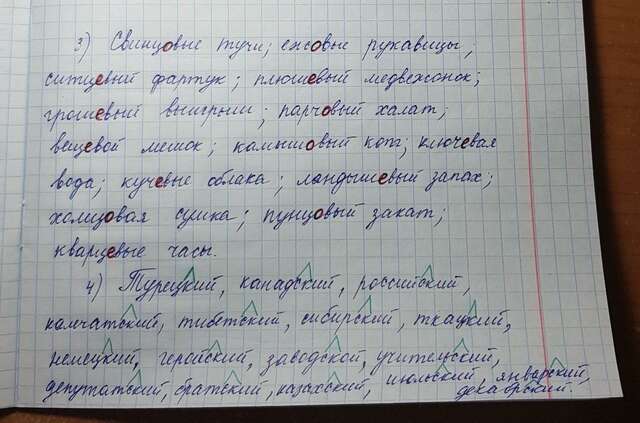 3) Свинцовые тучи; ежовые рукавицы;
ситцевый фартук; плюшевый медвежонок;
грошевый выигрыш; парчовый халат;
вещевой мешок; камышовый кот; ключевая
вода; кучевые облака; ландышевый запах;
холщовая сумка; пунцовый закат;
кварцевые часы.
4) Турецкий, канадский, российский,
камчатский, тибетский, сибирский, ткацкий,
немецкий, геройский, заводской, учительский,
депутатский, братский, казахский, июльский январский,
декабрский.